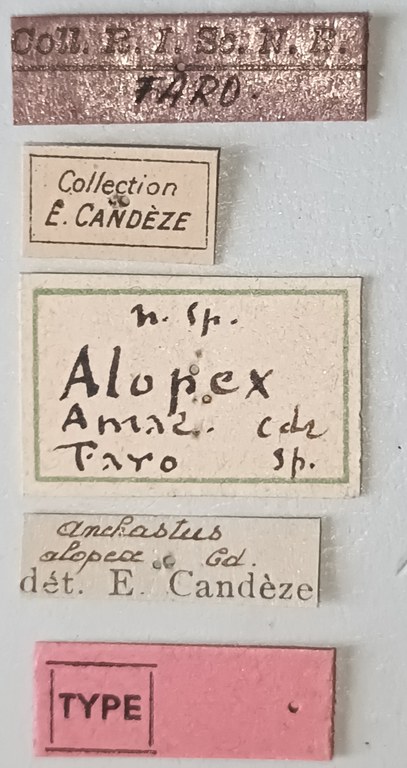 Coll. R. I. Sc. N. B.
FARO.
Collection
E. CANDÈZE
n. sp.
Alopex
Amaz. cdz
Faro sp.
Anchastus
alopex Cd.
dét. E. Candèze
TYPE